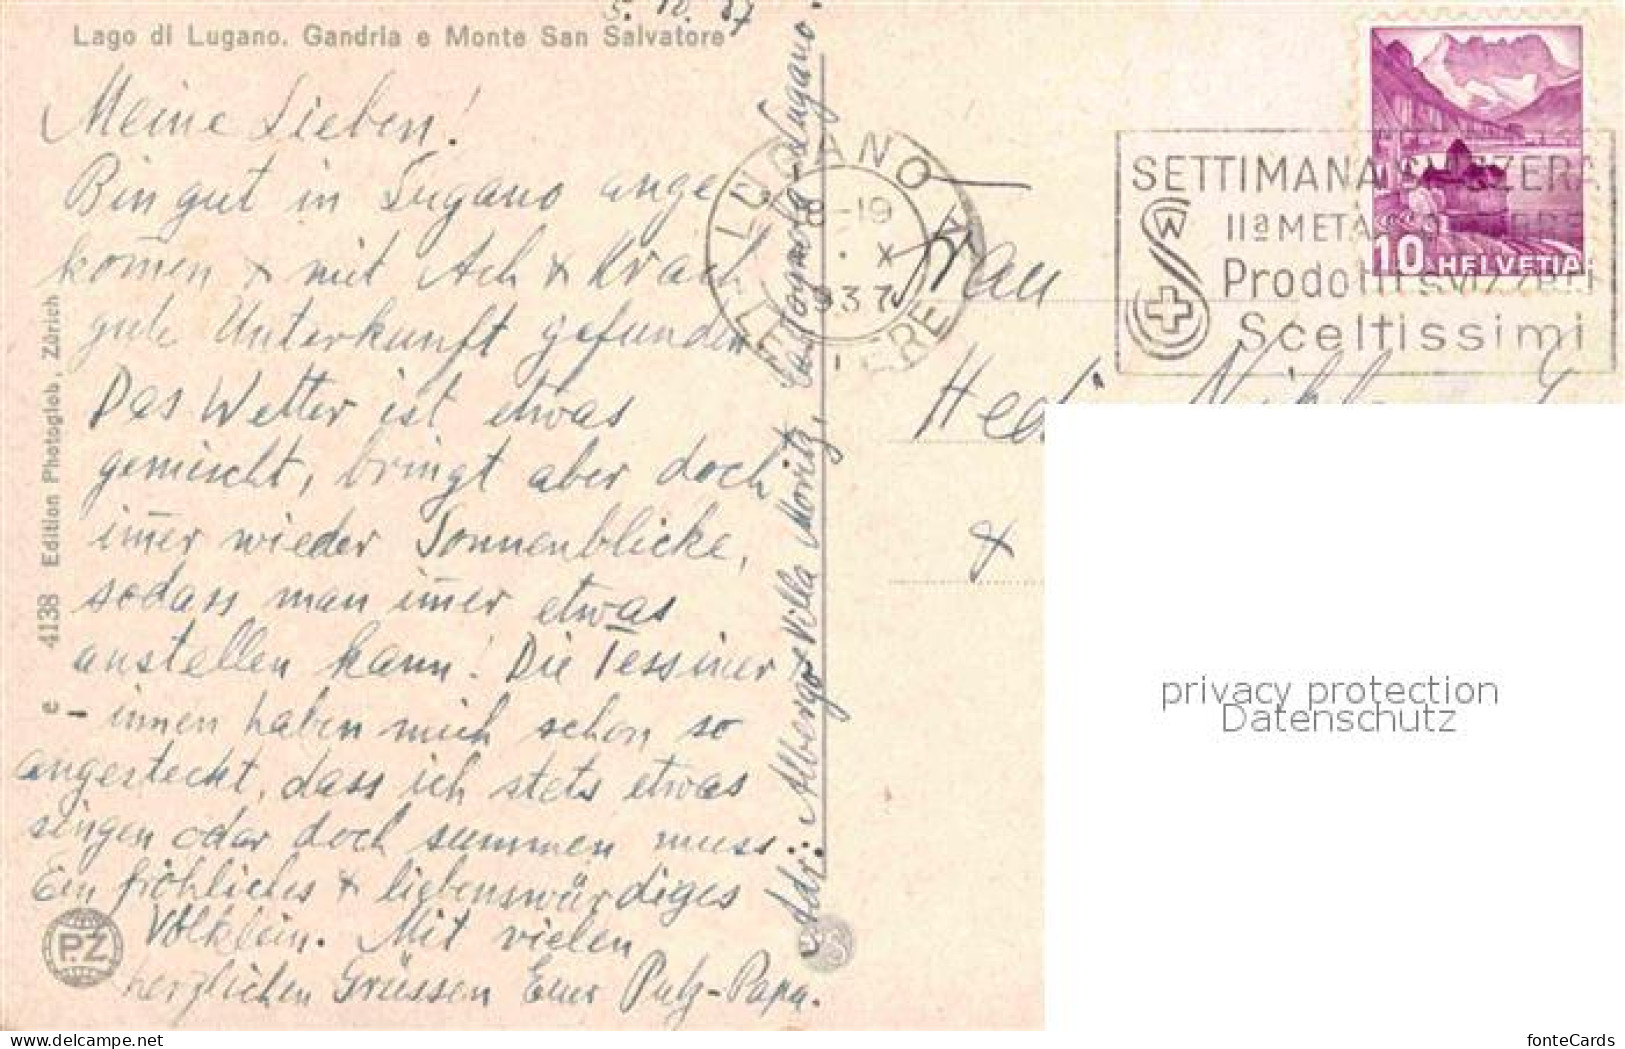 5. 10. 37
Lago di Lugano. Gandria e Monte San Salvatore
Meine Lieben!
Bin gut in Lugano ange
kom̄en & mit Ach & Krach
gute Unterkunft gefunden
Das Wetter ist etwas
gemischt, bringt aber doch
im̄er wieder Sonnenblicke,
sodass man im̄er etwas
anstellen kann! Die Tessiner &
– innen haben mich schon so
angesteckt, dass ich stets etwas
singen oder doch summen muss.
Ein fröhliches & liebenswürdiges
Völklein. Mit vielen
herzlichen Grüssen Euer Putz-Papa.
Adr: Albergo & Villa Moritz, Castagnola-Lugano
e 4138 Edition Photoglob, Zürich
P.Z
LUGANO 1
18–19
X
1937
LETTERE
SETTIMANA SVIZZERA
IIª METÀ OTTOBRE
Prodotti svizzeri
Sceltissimi
10 HELVETIA
Frau
Hedi
&
privacy protection
Datenschutz
www.delcampe.net
fonteCards